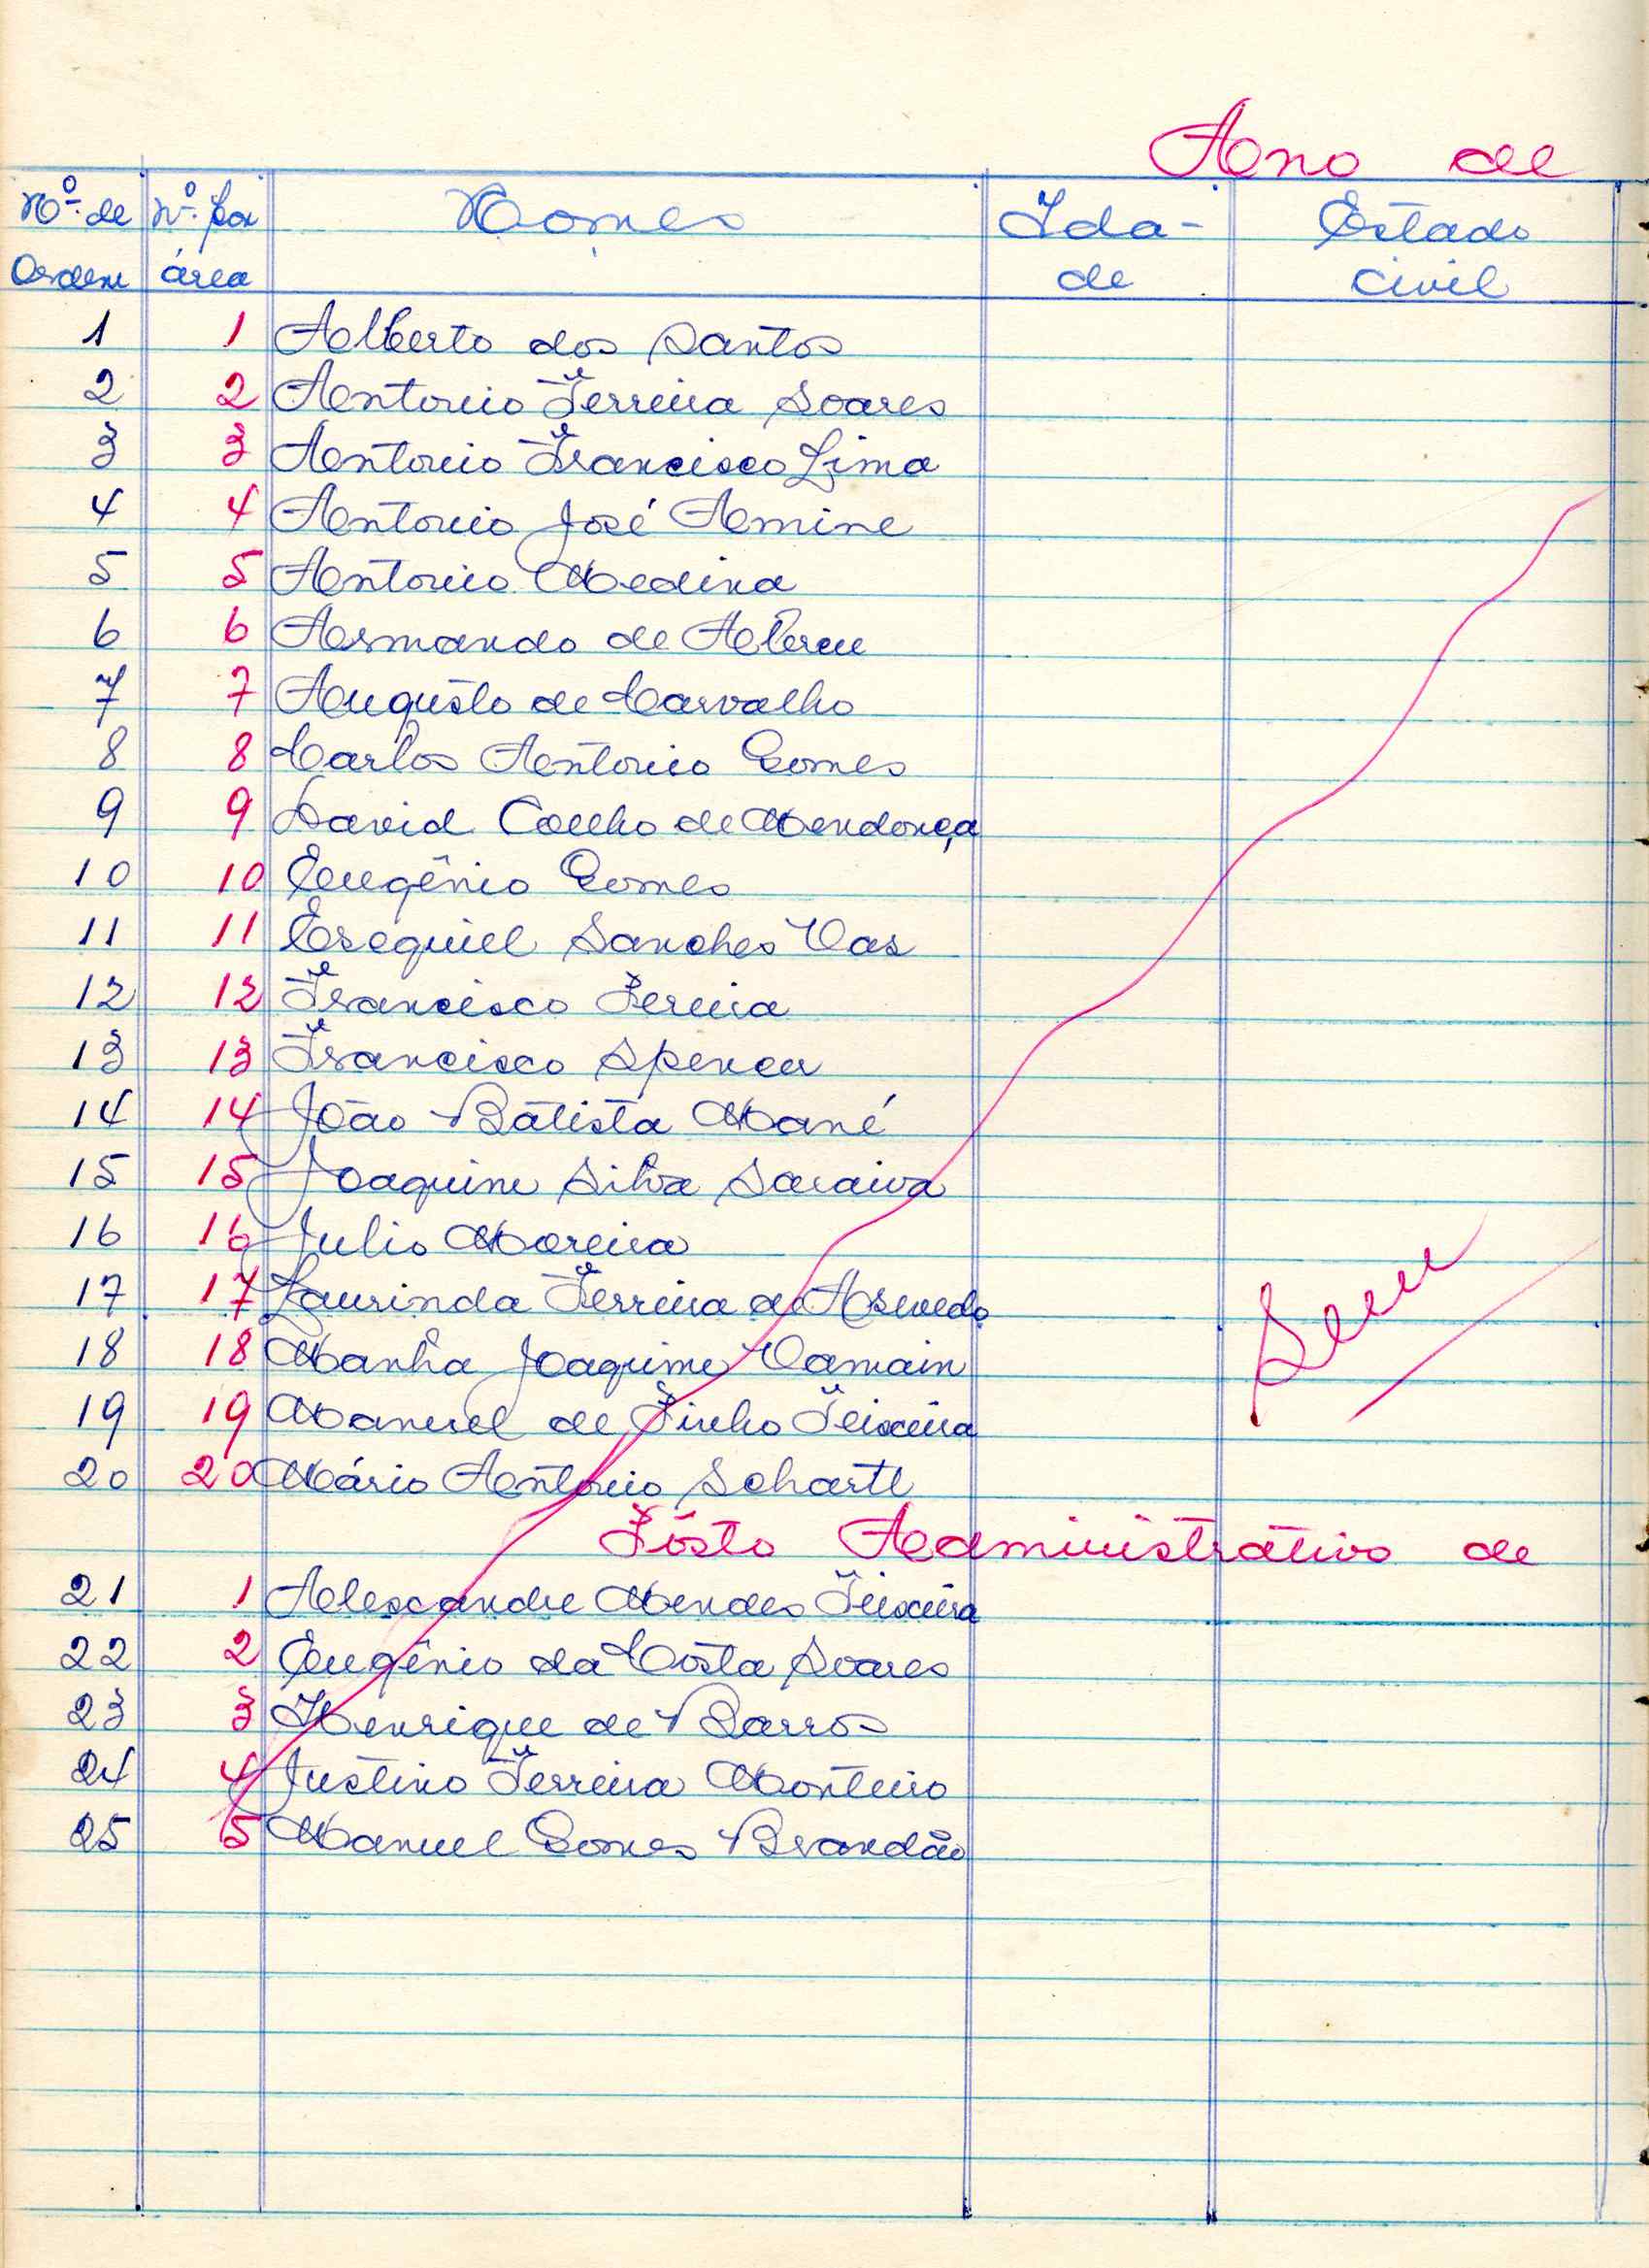 Ano de
Nº de Nº por Nomes Ida- Estado
Ordem área de civil
1 1 Alberto dos Santos
2 2 Antonio Ferreira Soares
3 3 Antonio Francisco Lima
4 4 Antonio José Amine
5 5 Antonio Medina
6 6 Armando de Abreu
7 7 Augusto de Carvalho
8 8 Carlos Antonio Gomes
9 9 David Coelho de Mendonça
10 10 Eugênio Gomes
11 11 Esequiel Sanches Vas
12 12 Francisco Pereira
13 13 Francisco Spencer
14 14 João Batista Mané
15 15 Joaquim Silva Saraiva
16 16 Julio Moreira
17 17 Laurinda Ferreira de Asevedo
18 18 Joaquim
19 19 Manuel de Pinho Teixeira
20 20 Mário Antonio Schartl
Pôsto Administrativo de
21 1 Alexandre Mendes Teixeira
22 2 Eugênio da Costa Soares
23 3 Henrique de Barros
24 4 Justino Ferreira Monteiro
25 5 Manuel Gomes Brandão